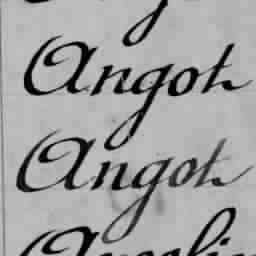 Angot
Angot